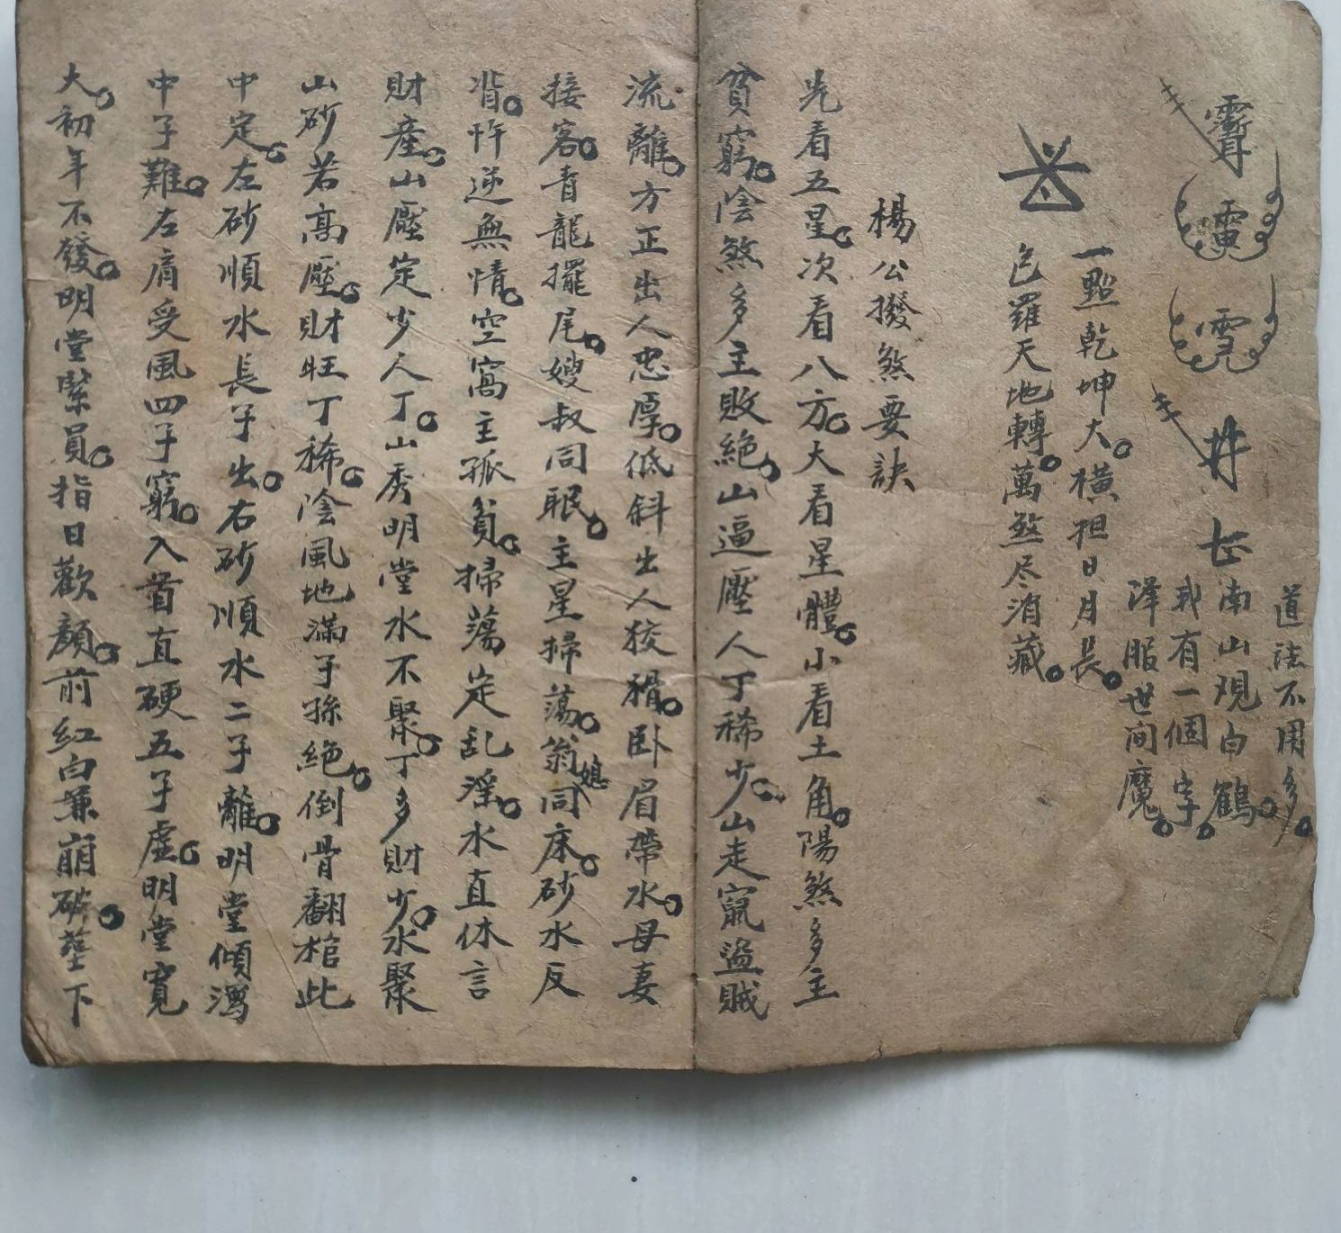 道法不用多
南山观白鶴
我有一個字
澤服世间魔
一點乾坤大横担日月長
包羅天地轉萬煞尽消藏
楊公撥煞要訣
先看五星次看八方大看星體小看土角陽煞多主
貧窮陰煞多主敗絶山逼壓人丁稀少山走竄盗賊
流離方正出人忠厚低斜出人狡猾卧眉帶水母妻
接客青龍擺尾嫂叔同眠主星掃蕩翁媳同床砂水反
背忤逆無情空窩主孤貧掃蕩定乱淫水直休言
財産山壓定少人丁山秀明堂水不聚丁多財少水聚
山砂若高壓財旺丁稀陰風地滿子孫絶倒骨翻棺此
中定左砂順水長子出右砂順水二子離明堂傾瀉
中子難左肩受風四子窮入首直硬五子虚明堂寬
大初年不發明堂緊員指日歡顔前紅白兼崩破塋下